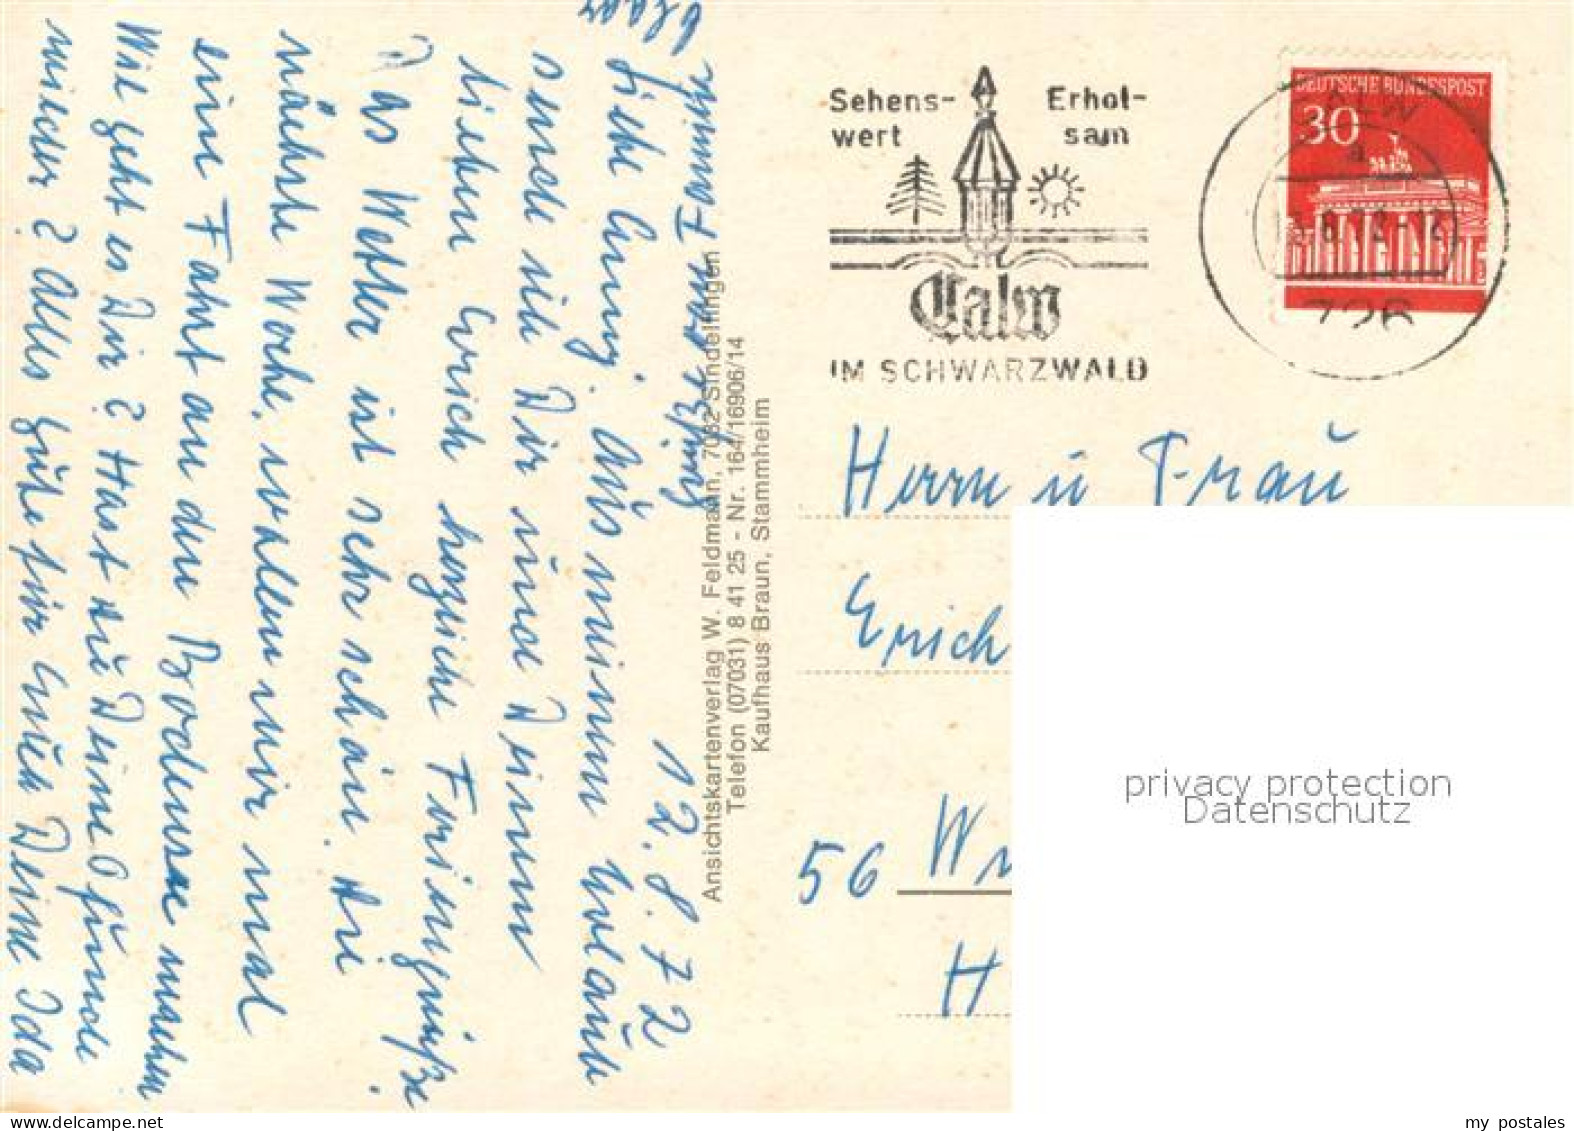 12.8.72
Liebe Anny! Aus meinem Urlaub
sende ich Dir und Deinem
lieben Erich herzliche Feriengrüße.
Das Wetter ist sehr schön. Die
nächste Woche, wollen wir mal
eine Fahrt an den Bodensee machen
Wie geht es Dir? Hast du Deine
wieder? Alles gute für Euch Deine Ida
Ansichtskartenverlag W. Feldmann, 7032 Sindelfingen
Telefon (07031) 8 41 25 - Nr. 164/16906/14
Kaufhaus Braun, Stammheim
Sehens-
wert
Erhol-
sam
Calw
IM SCHWARZWALD
DEUTSCHE BUNDESPOST
30
726
Herrn u Frau
Erich
56
H
privacy protection
Datenschutz
www.delcampe.net
my_postales